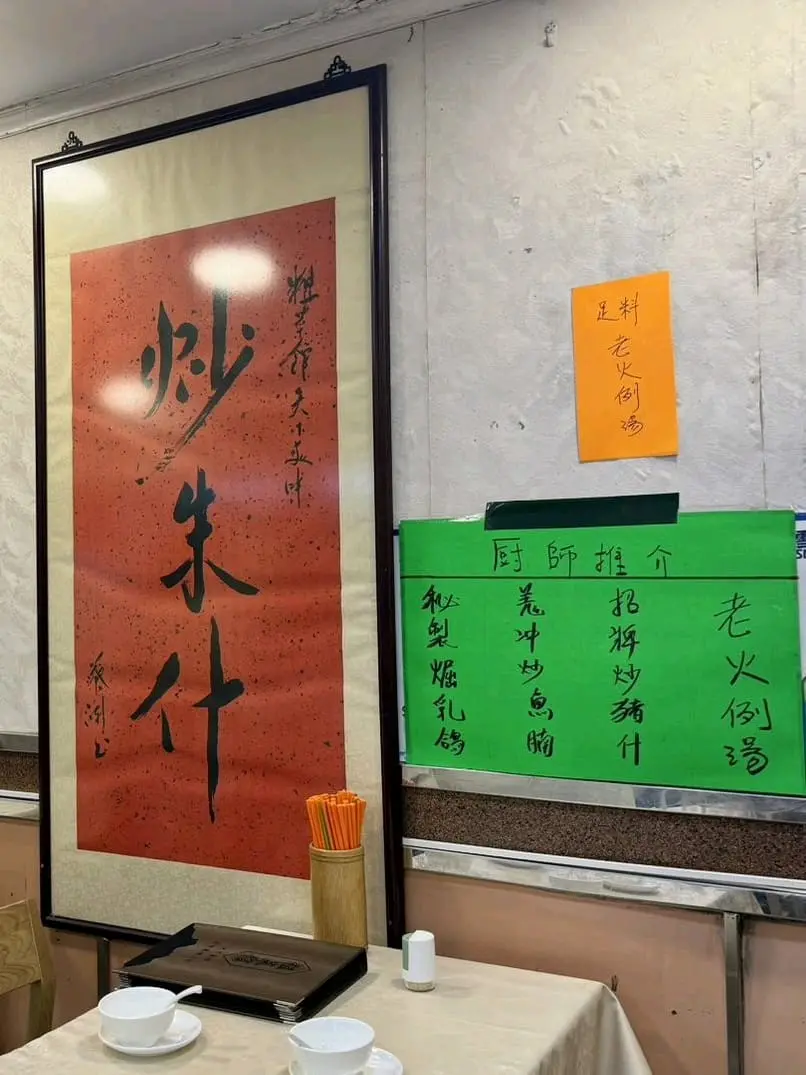 粗菜館天下美味
炒朱什
足料
老火例湯
厨師推介
老火例湯
招牌炒豬什
羗冲炒魚腩
秘製焗乳鴿